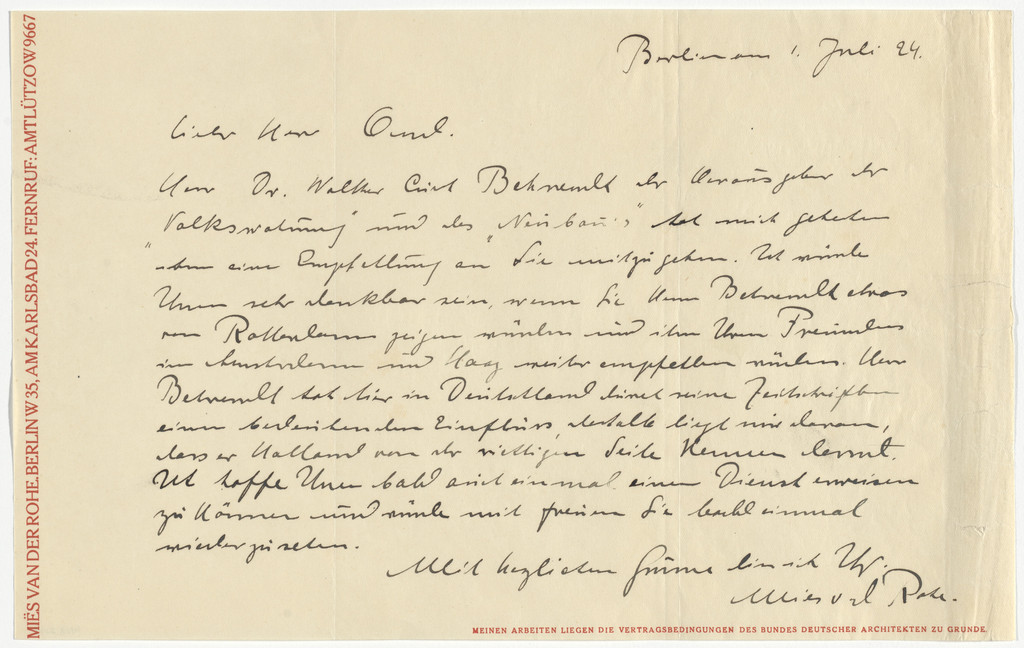 MIËS VAN DER ROHE. BERLIN W 35, AM KARLSBAD 24. FERNRUF: AMT LÜTZOW 9667
Berlin am 1. Juli 24.
Lieber Herr Oud.
Herr Dr. Walter Curt Behrendt der Herausgeber der
"Volkswohnung" und des "Neubau's" hat mich gebeten
ihm eine Empfehlung an Sie mitzugeben. Ich würde
Ihnen sehr dankbar sein, wenn Sie Herrn Behrendt etwas
von Rotterdam zeigen würden und ihn Ihren Freunden
in Amsterdam und Haag weiter empfehlen würden. Herr
Behrendt hat hier in Deutschland durch seine Zeitschriften
einen bedeutenden Einfluss, deshalb liegt mir daran,
dass er Holland von der richtigen Seite kennen lernt.
Ich hoffe Ihnen bald auch einmal einen Dienst erweisen
zu können und würde mich freuen Sie bald einmal
wiederzusehen.
Mit herzlichen Grüssen bin ich Ihr
Mies v d Rohe.
MEINEN ARBEITEN LIEGEN DIE VERTRAGSBEDINGUNGEN DES BUNDES DEUTSCHER ARCHITEKTEN ZU GRUNDE